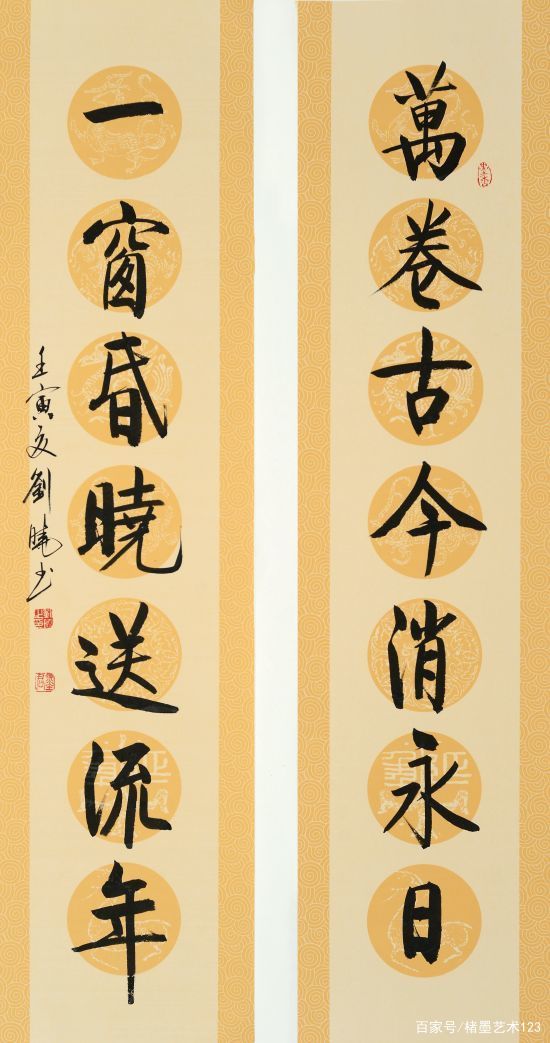 萬卷古今消永日
一窗昏曉送流年
壬寅夏劉曉书
百家号/楮墨艺术123